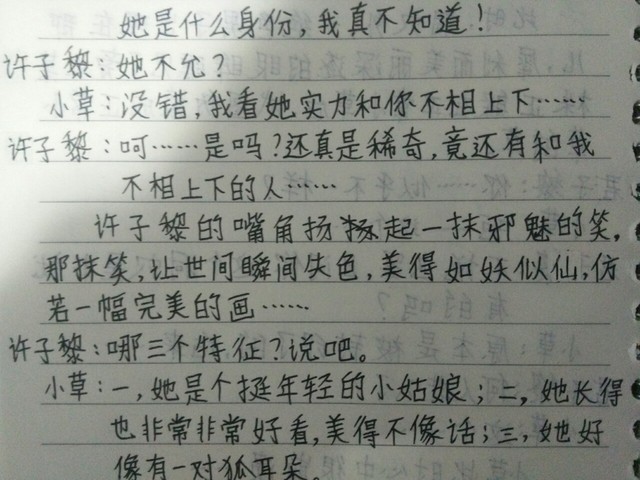 她是什么身份，我真不知道！
许子黎：她不允？
小草：没错，我看她实力和你不相上下……
许子黎：呵……是吗？还真是稀奇，竟还有和我
不相上下的人……
许子黎的嘴角扬起一抹邪魅的笑，
那抹笑，让世间瞬间失色，美得如妖似仙，仿
若一幅完美的画……
许子黎：哪三个特征？说吧。
小草：一，她是个挺年轻的小姑娘；二，她长得
也非常非常好看，美得不像话；三，她好
像有一对狐耳朵。